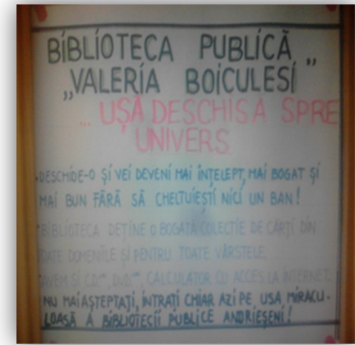 BIBLIOTECA PUBLICĂ „
„VALERIA BOICULESI
... UȘĂ DESCHISA SPRE
UNIVERS
DESCHIDE-O ȘI VEI DEVENI MAI ÎNȚELEPT, MAI BOGAT ȘI
MAI BUN FĂRĂ SĂ CHELTUIEȘTI NICI UN BAN!
BIBLIOTECA DEȚINE O BOGATĂ COLECTIE DE CĂRȚI DIN
TOATE DOMENIILE SI PENTRU TOATE VÂRSTELE.
AVEM SI CD, DVD, CALCULATOR CU ACCES LA INTERNET.
NU MAI AȘTEPTAȚI, INTRAȚI CHIAR AZI PE USA MIRACU-
LOASĂ A BIBLIOTECII PUBLICE ANDRIEȘENI!